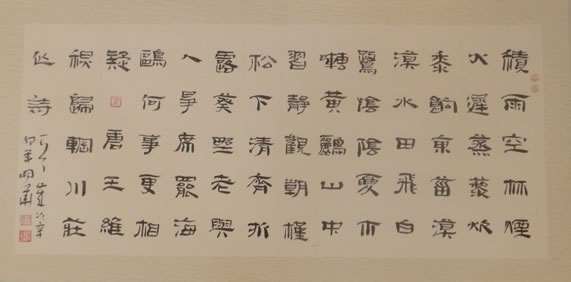 積雨空林煙
火遲蒸藜炊
黍餉東菑漠
漠水田飛白
鷺陰陰夏木
囀黃鸝山中
習靜觀朝槿
松下清齋折
露葵野老與
人爭席罷海
鷗何事更相
疑唐王維
秋歸輞川莊
作詩